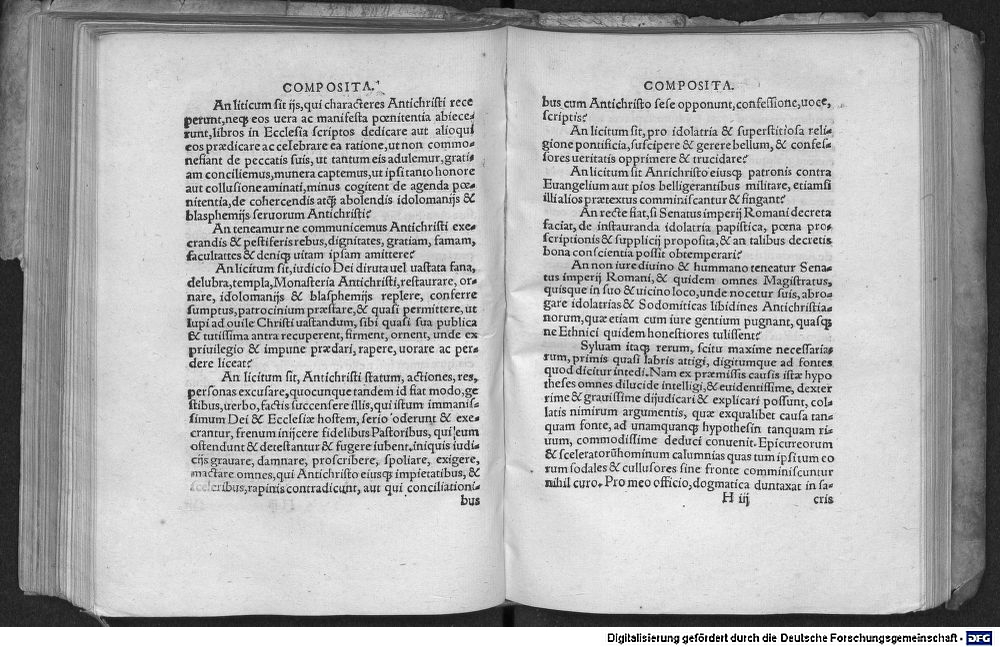 COMPOSITA.
An liticum sit ijs, qui characteres Antichristi rece
perunt, neqꝫ eos uera ac manifesta pœnitentia abiece-
runt, libros in Ecclesia scriptos dedicare aut alioqui
eos prædicare ac celebrare ea ratione, ut non commo-
nefiant de peccatis suis, ut tantum eis adulemur, grati-
am conciliemus, munera captemus, ut ipsi tanto honore
aut collusione aminati, minus cogitent de agenda pœ-
nitentia, de cohercendis atqꝫ abolendis idolomanijs &
blasphemijs seruorum Antichristi?
An teneamur ne communicemus Antichristi exe-
crandis & pestiferis rebus, dignitates, gratiam, famam,
facultattes & deniqꝫ uitam ipsam amittere?
An licitum sit, iudicio Dei diruta uel uastata fana,
delubra, templa, Monasteria Antichristi, restaurare, or-
nare, idolomanijs & blasphemijs replere, conferre
sumptus, patrocinium præstare, & quasi permittere, ut
lupi ad ouile Christi uastandum, sibi quasi sua publica
& tutissima antra recuperent, firment, ornent, unde ex
priuilegio & impune prædari, rapere, uorare ac per-
dere liceat?
An licitum sit, Antichristi statum, actiones, res,
personas excusare, quocunque tandem id fiat modo, ge
stibus, uerbo, factis succensere illis, qui istum immanis-
simum Dei & Ecclesiæ hostem, serio oderunt & exe-
crantur, frenum inijcere fidelibus Pastoribus, qui eum
ostendunt & detestantur & fugere iubent, iniquis iudi-
cijs grauare, damnare, proscribere, spoliare, exigere,
mactare omnes, qui Antichristo eiusqꝫ impietatibus, &
sceleribus, rapinis contradicunt, aut qui conciliationi-
bus
COMPOSITA.
bus cum Antichristo sese opponunt, confessione, uoce,
scriptis?
An licitum sit, pro idolatria & superstitiosa reli-
gione pontificia, suscipere & gerere bellum, & confes-
sores ueritatis opprimere & trucidare?
An licitum sit Anrichristo eiusqꝫ patronis contra
Euangelium aut pios belligerantibus militare, etiamsi
illi alios prætextus comminiscantur & fingant?
An recte fiat, si Senatus imperij Romani decreta
faciat, de instauranda idolatria papistica, pœna pro-
scriptionis & supplicij proposita, & an talibus decretis
bona conscientia possit obtemperari?
An non iure diuino & hummano teneatur Sena-
tus imperij Romani, & quidem omnes Magistratus,
quisque in suo & uicino loco, unde nocetur suis, abro-
gare idolatrias & Sodomiticas libidines Antichristia-
norum, quæ etiam cum iure gentium pugnant, quasqꝫ
ne Ethnici quidem honestiores tulissent?
Syluam itaqꝫ rerum, scitu maxime necessaria-
rum, primis quasi labris attigi, digitumque ad fontes
quod dicitur intedi. Nam ex præmissis causis istæ hypo
theses omnes dilucide intelligi, & euidentissime, dexter
rime & grauissime dijudicari & explicari possunt, col-
latis nimirum argumentis, quæ exqualibet causa tan-
quam fonte, ad unamquanqꝫ hypothesin tanquam ri-
uum, commodissime deduci conuenit. Epicureorum
& sceleratorũ hominum calumnias quas tum ipsi tum eo
rum sodales & cullusores sine fronte comminiscuntur
nihil curo. Pro meo officio, dogmatica duntaxat in sa-
H iij cris
Digitalisierung gefördert durch die Deutsche Forschungsgemeinschaft - DFG